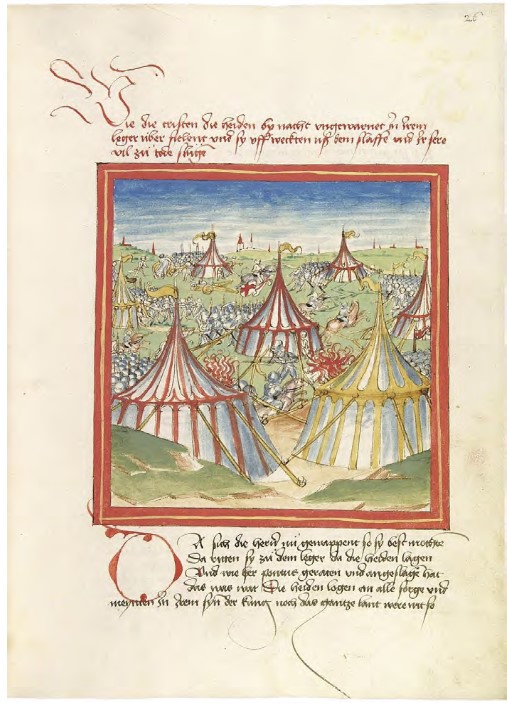 26
Wie die cristen die heiden by nacht ungewarnet in irem
leger über fielent und sy uff weckten uß dem slaffe und ir sere
vil zü tode slüge
DA sich die hern nü gewappent so sy best mochte
Da ritten sy zü dem leger da die heiden lagen
Und wie her pontus geraten und angeslage hat
das was war Die heiden logen on alle sorge und
meynten In Irem syn der künig noch das gantze lant were nit so